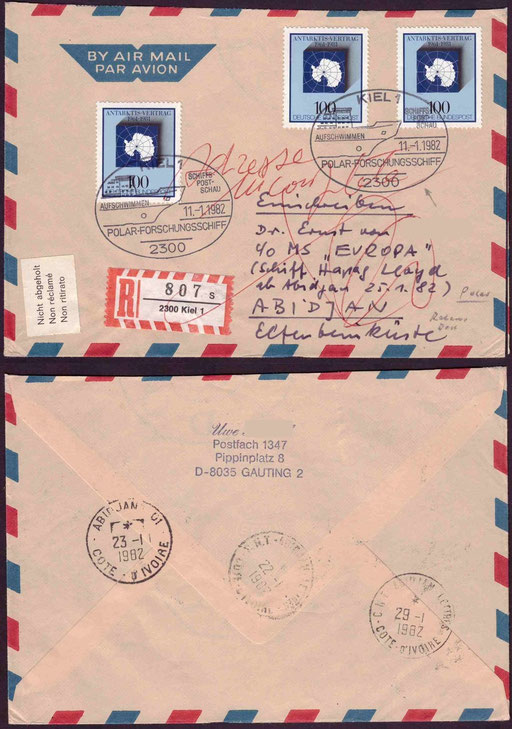 BY AIR MAIL
PAR AVION
ANTARKTIS-VERTRAG
1961-1981
100
DEUTSCHE BUNDESPOST
ANTARKTIS-VERTRAG
1961-1981
100
DEUTSCHE BUNDESPOST
ANTARKTIS-VERTRAG
1961-1981
100
KIEL 1
SCHIFFS-
POST-
SCHAU
AUFSCHWIMMEN
11.-1.1982
POLAR-FORSCHUNGSSCHIFF
2300
KIEL 1
SCHIFFS-
POST-
SCHAU
AUFSCHWIMMEN
11.-1.1982
POLAR-FORSCHUNGSSCHIFF
2300
Adresse
Einschreiben
Dr. Ernst von
40 MS "EVROPA"
(Schiff Hapag Lloyd
ab Abidjan 25.1.82)
ABIDJAN
Elfenbeinküste
Polar
Nicht abgeholt
Non réclamé
Non ritirato
R
807 s
2300 Kiel 1
Uwe
Postfach 1347
Pippinplatz 8
D-8035 GAUTING 2
ABIDJAN 01
23-1
1982
COTE-D'IVOIRE
22-1
29-1
1982
COTE-D'IVOIRE